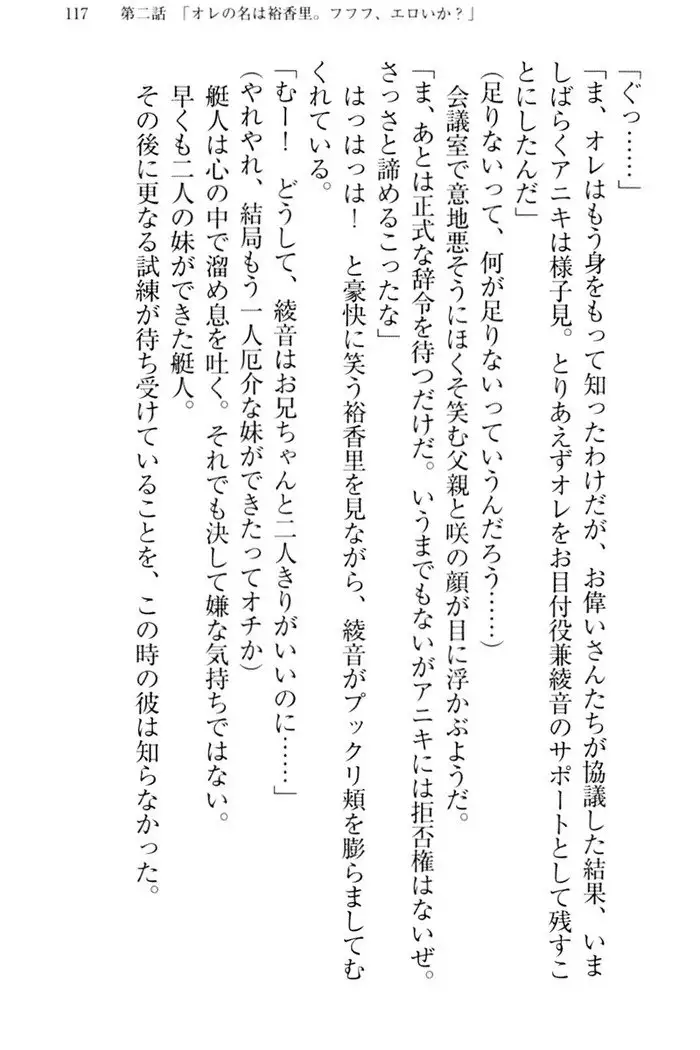 117　第二話　「オレの名は裕香里。フフフ、エロいか？」
「ぐっ……」
「ま、オレはもう身をもって知ったわけだが、お偉いさんたちが協議した結果、いま
しばらくアニキは様子見。とりあえずオレをお目付役兼綾音のサポートとして残すこ
とにしたんだ」
（足りないって、何が足りないっていうんだろう……）
会議室で意地悪そうにほくそ笑む父親と咲の顔が目に浮かぶようだ。
「ま、あとは正式な辞令を待つだけだ。いうまでもないがアニキには拒否権はないぜ。
さっさと諦めるこったな」
はっはっは！　と豪快に笑う裕香里を見ながら、綾音がプックリ頬を膨らましてむ
くれている。
「むー！　どうして、綾音はお兄ちゃんと二人きりがいいのに……」
（やれやれ、結局もう一人厄介な妹ができたってオチか）
艇人は心の中で溜め息を吐く。それでも決して嫌な気持ちではない。
早くも二人の妹ができた艇人。
その後に更なる試練が待ち受けていることを、この時の彼は知らなかった。